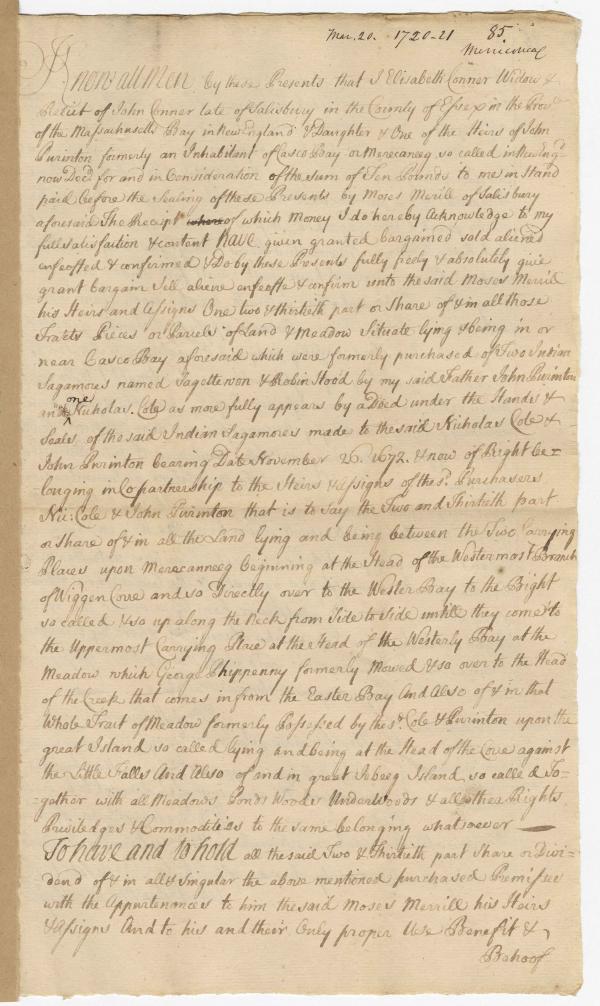 Mar. 20. 1720-21 85
Merriconeag
Know all Men by these Presents that I Elisabeth Conner Widow &
Relict of John Conner late of Salisbury in the County of Essex in the Provce
of the Massachusetts Bay in New England & Daughter & One of the Heirs of John
Purinton formerly an Inhabitant of Casco Bay or Merecaneeg so called in New Engd
now Decd for and in Consideration of the Sum of Ten Pounds to me in Hand
paid before the Sealing of these Presents by Moses Merrill of Salisbury
aforesaid The Receipt where of which Money I do hereby Acknowledge to my
full satisfaction & content Have given granted bargained sold aliened
enfeoffed & confirmed & Do by these Presents fully freely & absolutely give
grant bargain Sell aliene enfeoffe & confirm unto the said Moses Merrill
his Heirs and Assigns One two & thirtieth part or Share of & in all those
Tracts Pieces or Parcels of Land & Meadow Situate lying & being in or
near Casco Bay aforesaid which were formerly purchased of Two Indian
Sagamores named Jagettewon & Robin Hood by my said Father John Purinton
and one Nicholas Cole as more fully appears by a Deed under the Hands &
Seales of the said Indian Sagamores made to the said Nicholas Cole &
John Purinton bearing Date November 26. 1672. & now of Right be=
longing in Copartnership to the Heirs & assigns of the sd. Purchasers
Nic: Cole & John Purinton that is to say the Two and Thirtieth part
or Share of & in all the Land lying and being between the Two Carrying
Places upon Merecanneeg beginning at the Head of the Westermost Branch
of Wiggen Cove and so Directly over to the Wester Bay to the Bight
so called & so up along the Neck from Side to Side untill they come to
the Uppermost Carrying Place at the Head of the Westerly Bay at the
Meadow which George Phippenny formerly Mowed & so over to the Head
of the Creek that comes in from the Easter Bay And Also of & in that
Whole Tract of Meadow formerly Possessed by the sd. Cole & Purinton upon the
great Island so called lying and being at the Head of the Cove against
the Little Falls And Also of and in great Jebeeg Island, so called To=
=gether with all Meadows Ponds Woodes Underwoods & all other Rights
Priviledges & Commodities to the same belonging whatsoever —
To have and to hold all the said Two & Thirtieth part Share or Divi=
dend of & in all & Singular the above mentioned purchased Premisses
with the Appurtenances to him the said Moses Merrill his Heirs
& Assigns And to his and their Only proper Use Benefit &
Behoof